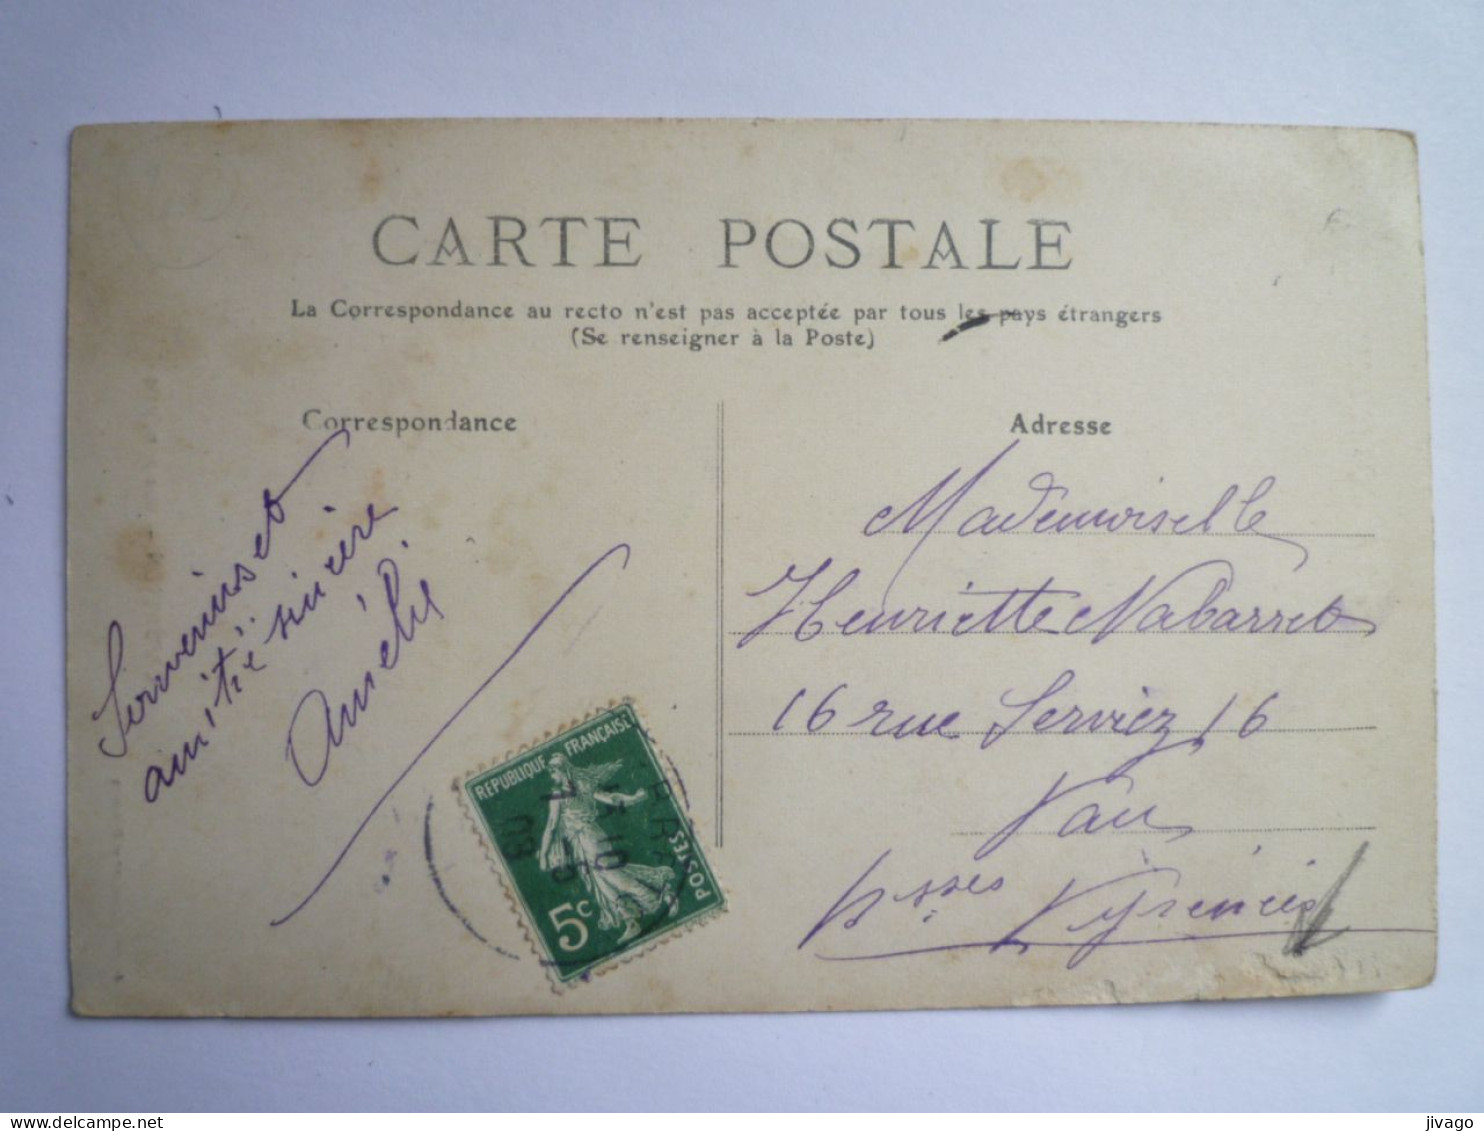 CARTE POSTALE
La Correspondance au recto n'est pas acceptée par tous les pays étrangers
(Se renseigner à la Poste)
Correspondance
Souvenirs et
amitié sincère
Amélie
Adresse
Mademoiselle
Henriette Nabarret
16 rue Serviez 16
Pau
Bsses Pyrénées
REPUBLIQUE FRANÇAISE
POSTES
5c
jivago